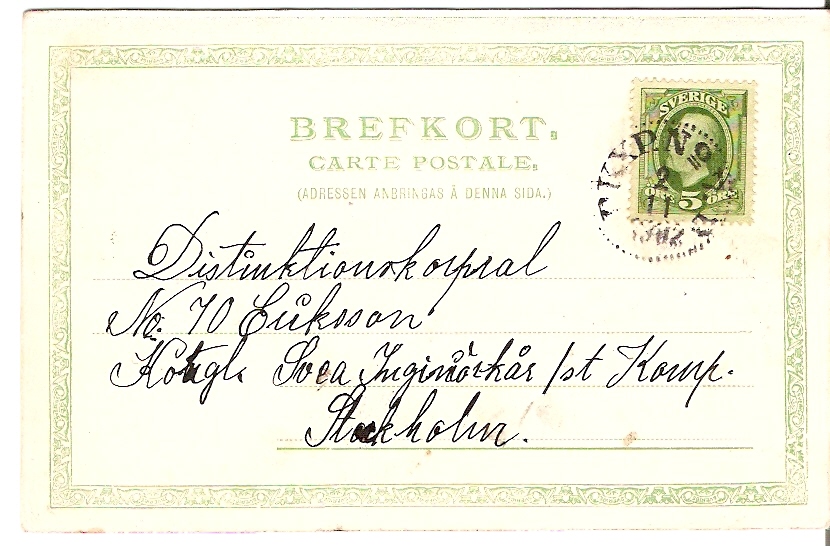 BREFKORT.
CARTE POSTALE.
(ADRESSEN ANBRINGAS Å DENNA SIDA.)
SVERIGE
ÖRE 5 ÖRE
2
11
1902
Distinktionskorpral
No. 70 Eriksson
Kongl. Svea Inginiörkår 1st Komp.
Stockholm.